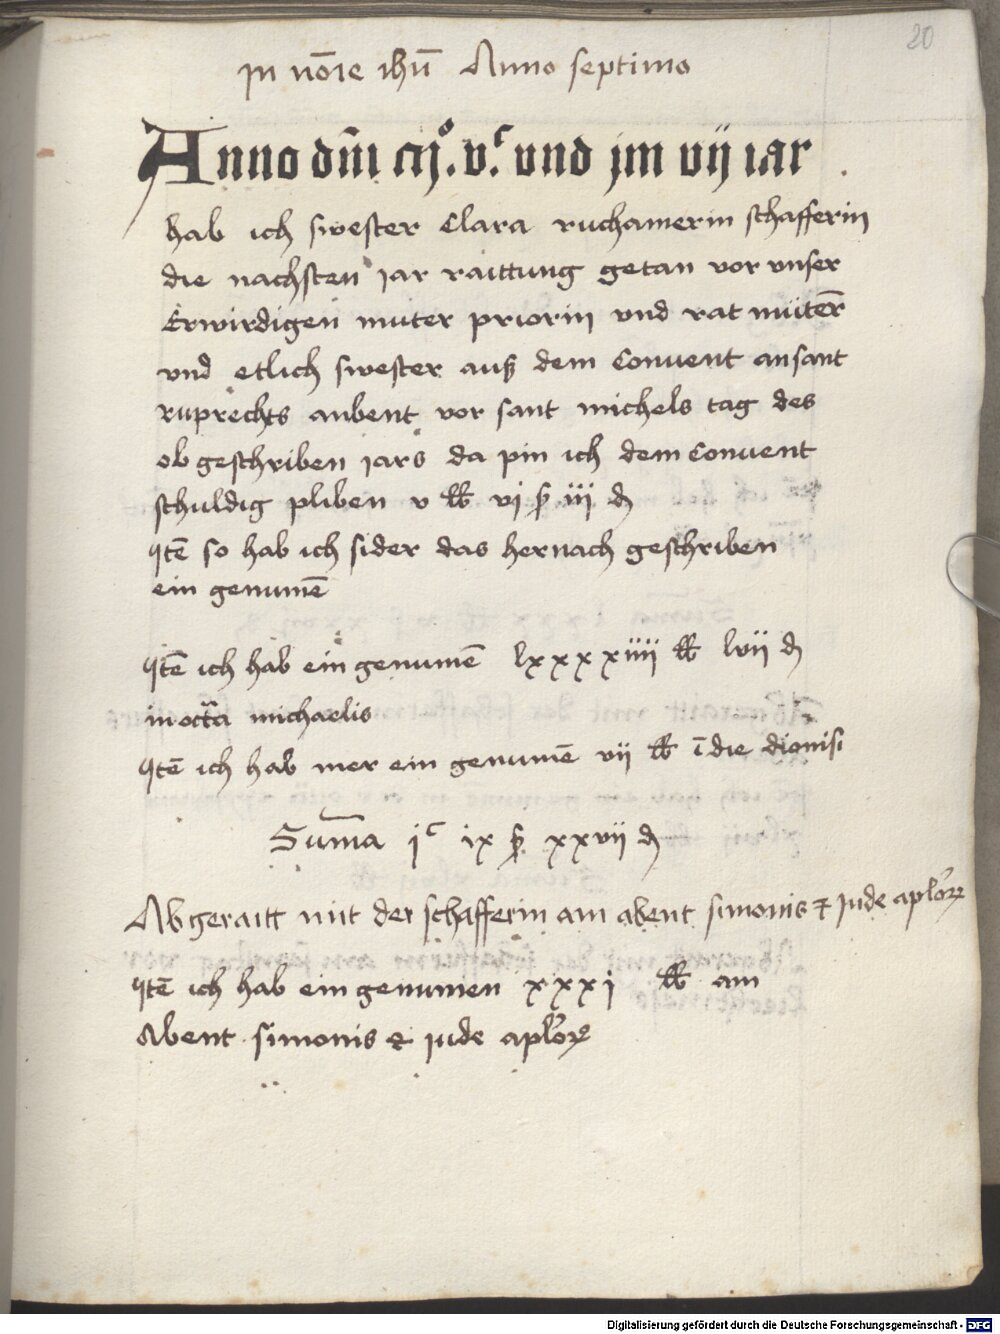 20
jn nōıe ihū Anno septimo
Anno dm̄i mͦ. vᶜ und jm vij iar
hab ich swester Clara ruchamerin schafferin
die nachsten jar raittung getan vor vnser
Erwirdigen muter priorin vnd rat müter̄
vnd etlich swester auß dem Convent an sant
ruprechts aubent vor sant michels tag des
ob geschriben jars da pin ich dem Convent
schuldig pliben v ℔ vj ß iii ₰
Itē so hab ich sider das hernach geschriben
ein genumē
Itē ich hab ein genumē lxxxxiiii ℔ lvii ₰
in octā michaelis
Itē ich hab mer ein genumē vii ℔ ī die dionisi
Sum̄a jᶜ ix ß xxvii ₰
Abgeraitt mit der schafferin am abent simonis et jude aplōꝝ
Itē ich hab ein genumen xxxj ℔ am
Abent simonis et jude aplōꝝ
Digitalisierung gefördert durch die Deutsche Forschungsgemeinschaft - DFG